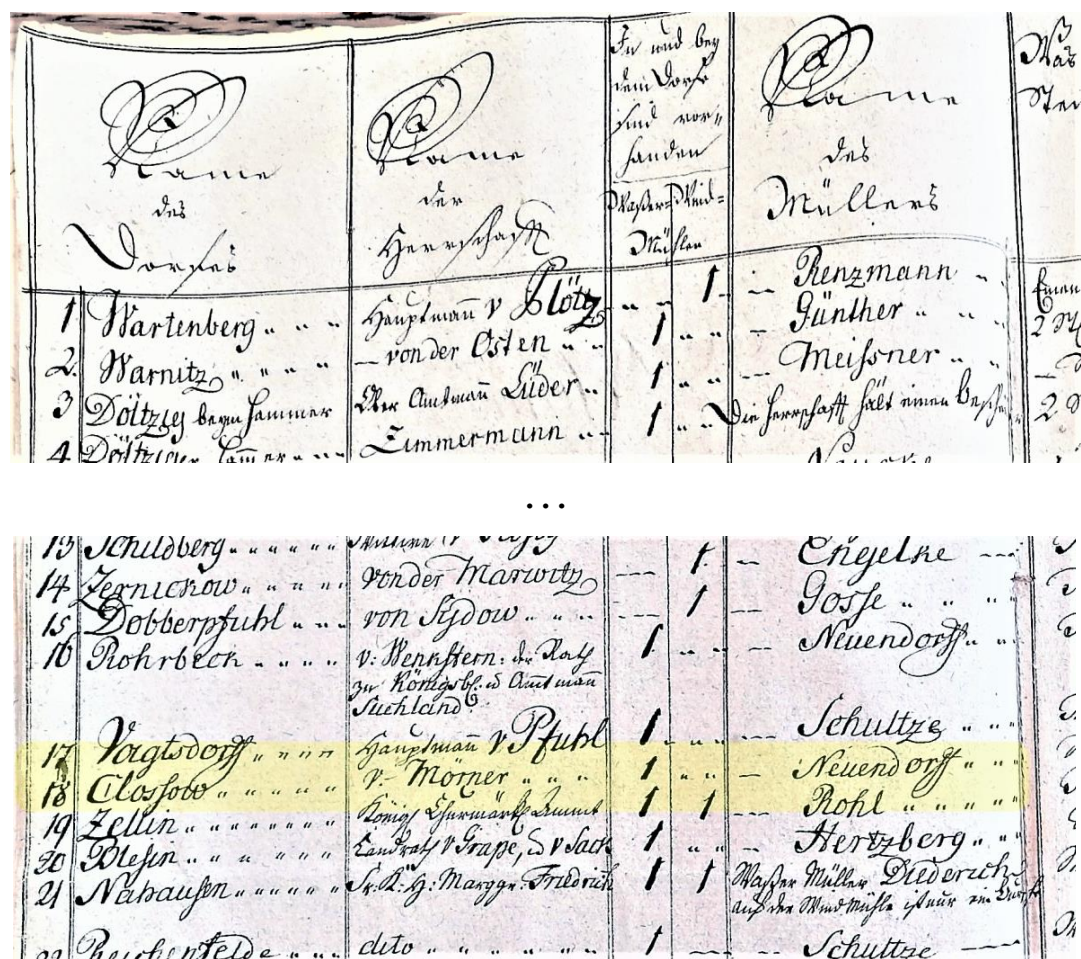 Name des Dorfes
Name der Herrschafft
In und bey dem Dorfe sind vorhanden
Waßer- Wind-
Mühlen
Name des Müllers
Was
1 Wartenberg Hauptmañ v Plötz 1 Renzmann
2. Warnitz von der Osten 1 Günther
3 Döltzig beym Hammer Ober Amtmañ Lüder 1 Meissner
4 Döltziger Zimmermann 1 Die Herrschafft hält einen
...
13 Schildberg 1 Engelke
14 Zernickow von der Marwitz 1 Gosse
15 Dobberpfuhl von Sydow 1 Neuendorff
16 Rohrbeck v: Wenkstern: der Rath 1
zu Königsb: u Amtmañ
Suchland
17 Vagtsdorff Hauptmañ v Pfuhl 1 Schultze
18 Clossow v. Mörner 1 Neuendorff
19 Zellin Königl Churmärk Ammt 1 1 Rohl
20 Blesin Landrath v Grape, u v Sack 1 Hertzberg
21 Nahausen Sr: K: H: Marggr: Friedrich 1 1 Waßer Müller Diederich
auf der Windmühle ist nur ein
22 Reichenfelde dito 1 Schultze